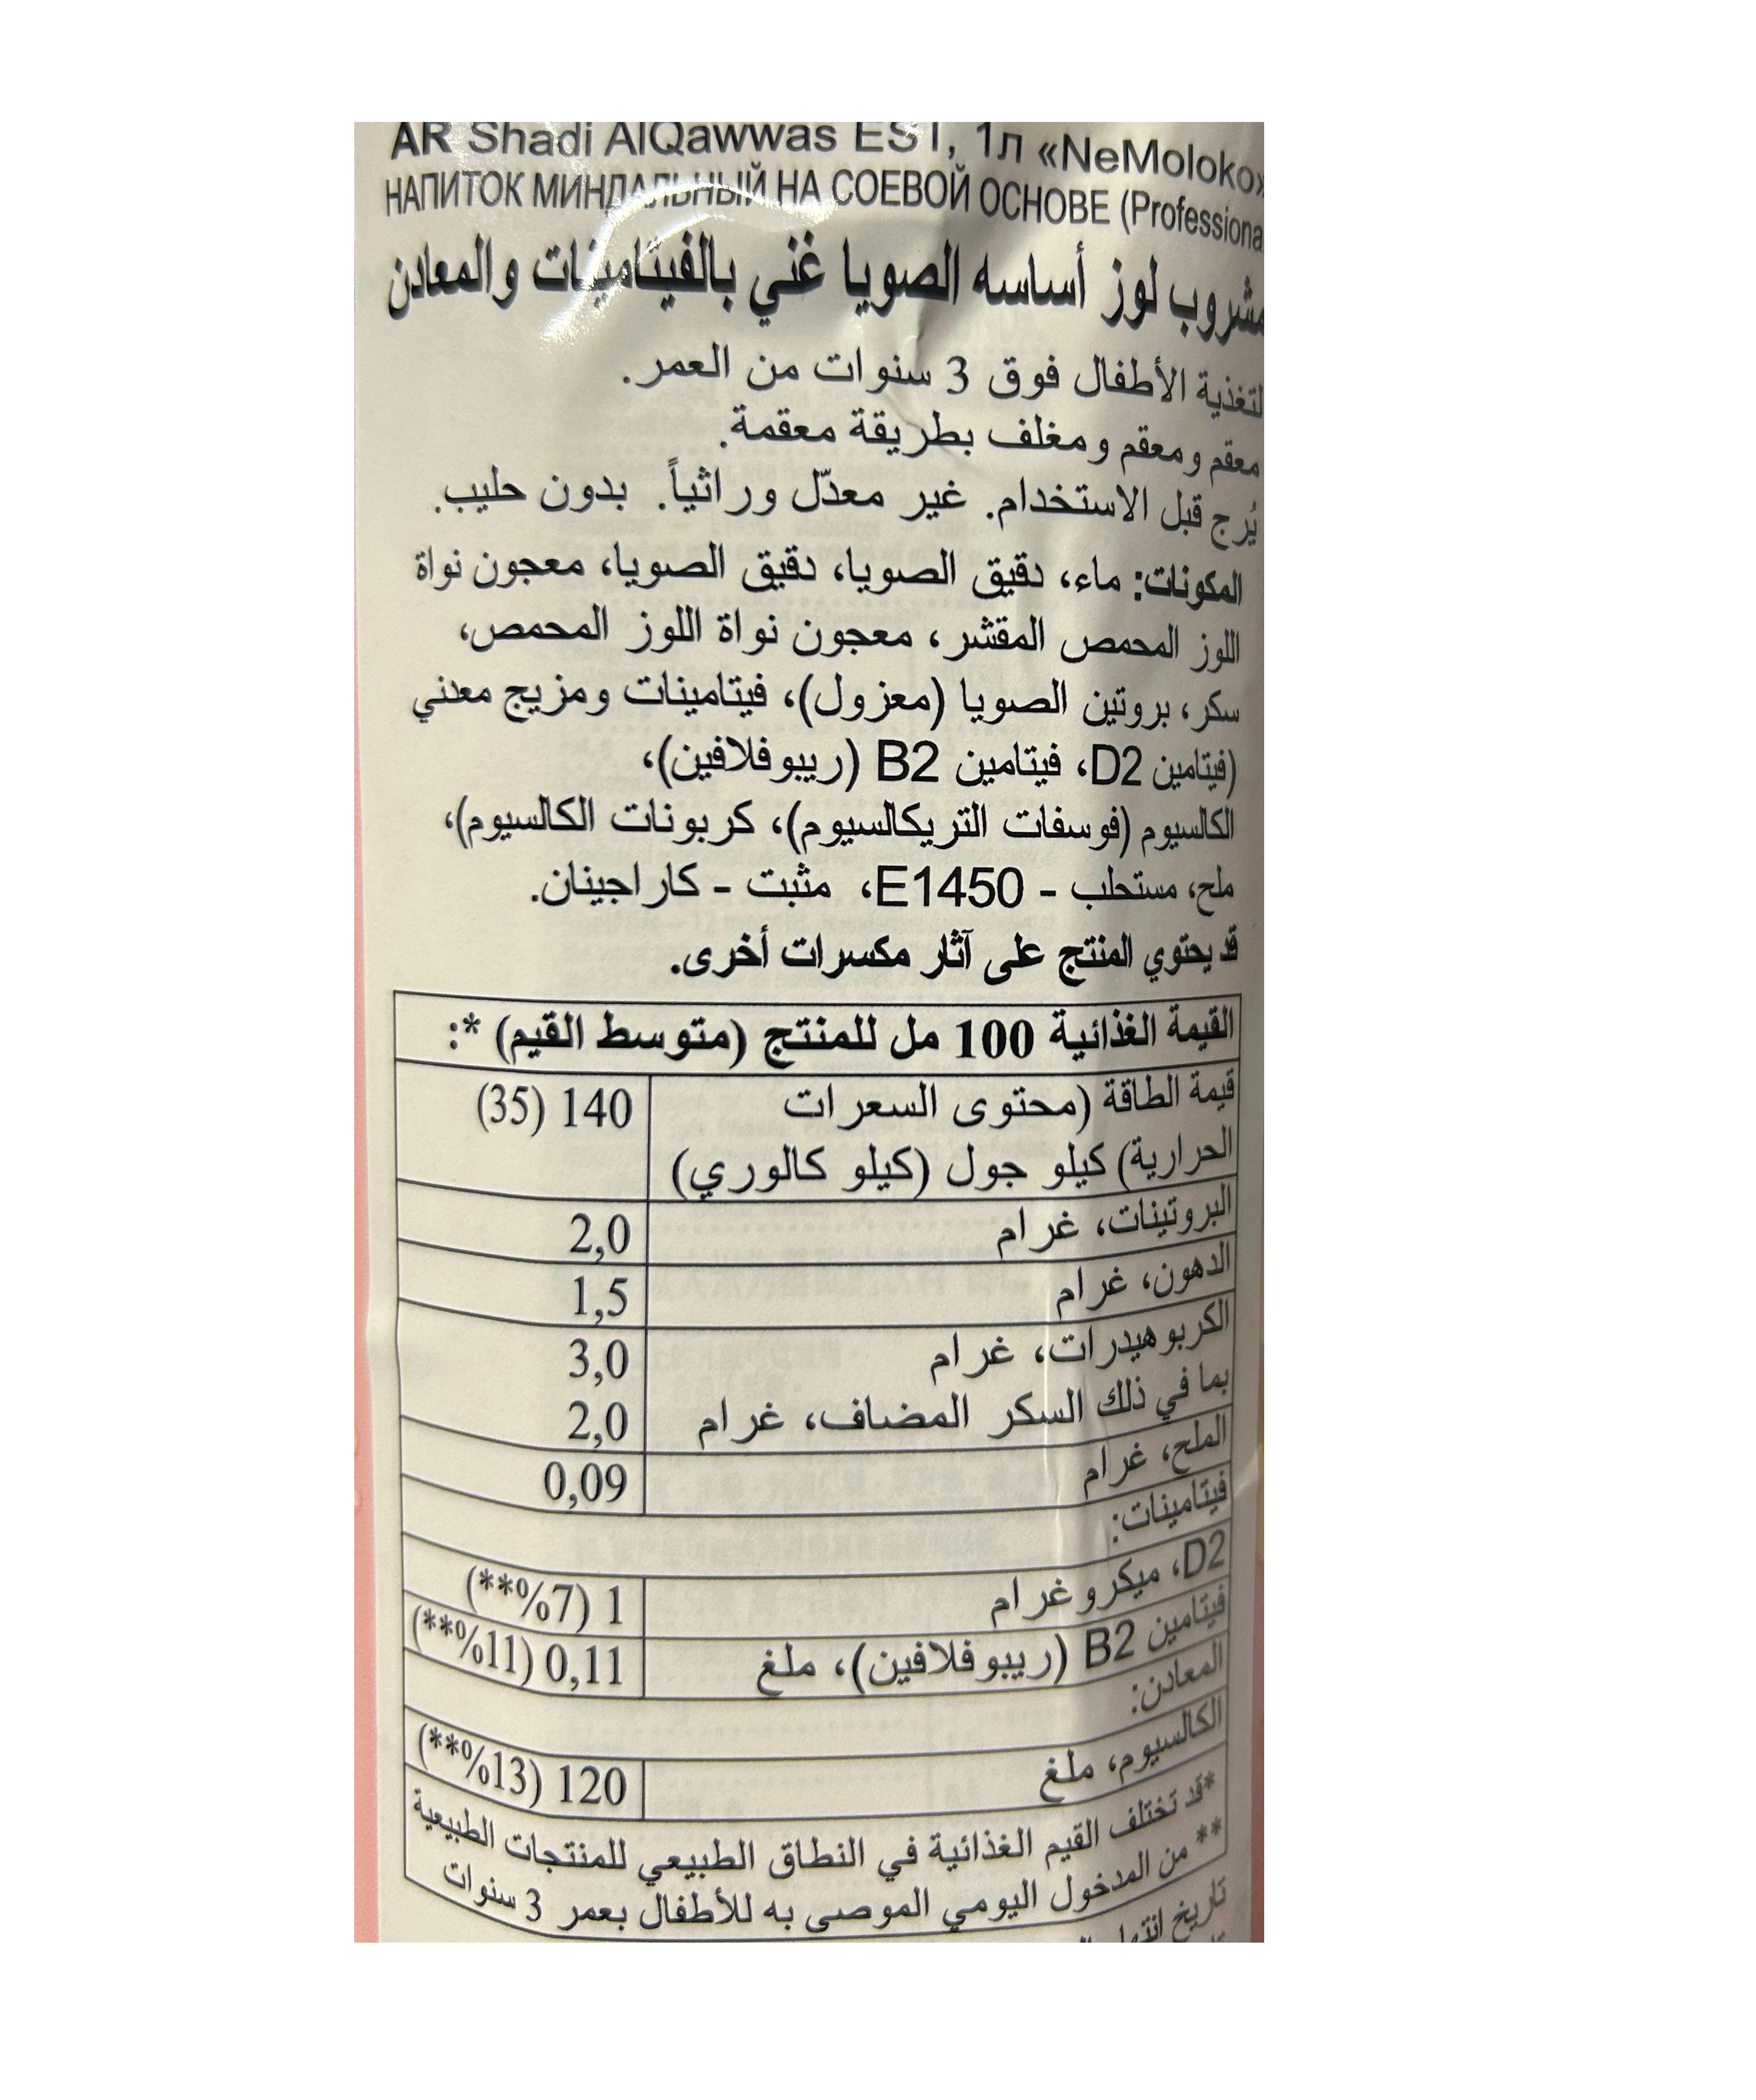 AR Shadi AlQawwas EST, 1л «NeMoloko»
НАПИТОК МИНДАЛЬНЫЙ НА СОЕВОЙ ОСНОВЕ (Professiona
مشروب لوز أساسه الصويا غني بالفيتامينات والمعادن
لتغذية الأطفال فوق 3 سنوات من العمر.
معقم ومعقم ومغلف بطريقة معقمة.
يُرج قبل الاستخدام. غير معدّل وراثياً. بدون حليب.
المكونات: ماء، دقيق الصويا، دقيق الصويا، معجون نواة
اللوز المحمص المقشر، معجون نواة اللوز المحمص،
سكر، بروتين الصويا (معزول)، فيتامينات ومزيج معدني
(فيتامين D2، فيتامين B2 (ريبوفلافين)،
الكالسيوم (فوسفات التريكالسيوم)، كربونات الكالسيوم)،
ملح، مستحلب - E1450، مثبت - كاراجينان.
قد يحتوي المنتج على آثار مكسرات أخرى.
القيمة الغذائية 100 مل للمنتج (متوسط القيم) *:
قيمة الطاقة (محتوى السعرات 140 (35)
الحرارية) كيلو جول (كيلو كالوري)
البروتينات، غرام 2,0
الدهون، غرام 1,5
الكربوهيدرات، غرام 3,0
بما في ذلك السكر المضاف، غرام 2,0
الملح، غرام 0,09
فيتامينات:
D2، ميكروغرام 1 (7%**)
فيتامين B2 (ريبوفلافين)، ملغ 0,11 (11%**)
المعادن:
الكالسيوم، ملغ 120 (13%**)
*قد تختلف القيم الغذائية في النطاق الطبيعي للمنتجات الطبيعية
** من المدخول اليومي الموصى به للأطفال بعمر 3 سنوات
تاريخ